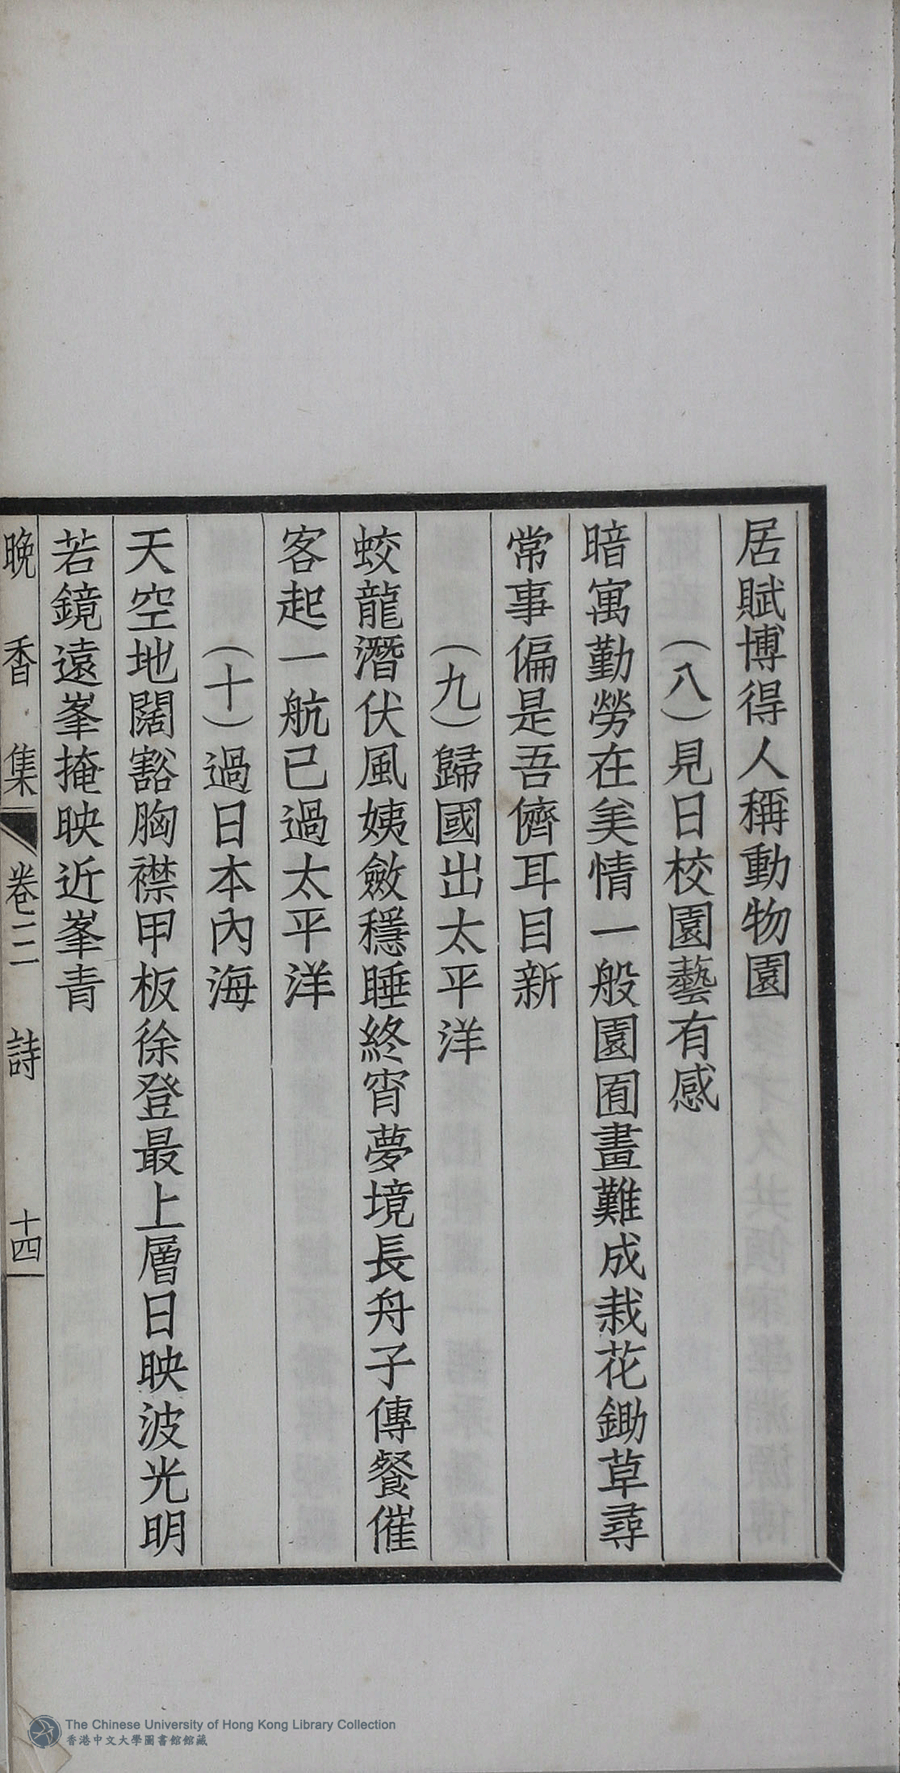 居賦博得人稱動物園
（八）見日校園藝有感
暗寓勤勞在美情一般園囿畫難成栽花鋤草尋
常事偏是吾儕耳目新
（九）歸國出太平洋
蛟龍潛伏風姨斂穩睡終宵夢境長舟子傳餐催
客起一航已過太平洋
（十）過日本內海
天空地闊豁胸襟甲板徐登最上層日映波光明
若鏡遠峯掩映近峯青
晚香集 卷二 詩 十四
The Chinese University of Hong Kong Library Collection
香港中文大學圖書館館藏